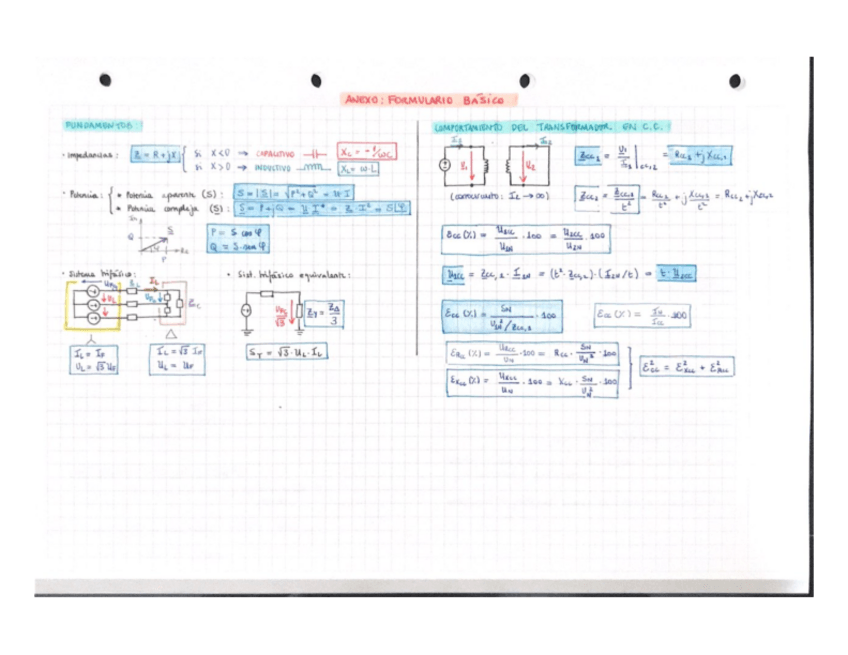 ANEXO: FORMULARIO BÁSICO
FUNDAMENTOS:
· Impedancias: Z = R + jX { Si X<0 → CAPACITIVO
Si X>0 → INDUCTIVO XL = ω·L
· Potencia: { * Potencia aparente (S): S = |S| = √P²+Q² = U·I
* Potencia compleja (S): S = P + jQ = U I* = Z · I² = S φ
P = S cos φ
Q = S·sen φ
· Sistema trifásico:
IL = IF
UL = √3 UF
IL = √3 IF
UL = UF
· Sist. trifásico equivalente:
ZY = ZΔ/3
ST = √3·UL·IL
COMPORTAMIENTO DEL TRANSFORMADOR EN C.C.:
(cortocircuito: I2 → ∞)
= Rcc,1 + jXcc,1
Ecc (%) = U1cc/U1N · 100 = U2cc/U2N · 100
U1cc = Zcc,1 · I1N = (t²·Zcc,2)·(I2N/t) = t·U2cc
Ecc (%) = SN/(UN²/Zcc) · 100
Ecc (%) = IN/Icc · 100
ERcc (%) = URcc/UN · 100 = Rcc · SN/UN² · 100
EXcc (%) = UXcc/UN · 100 = Xcc · SN/UN² · 100
E²cc = E²Xcc + E²Rcc